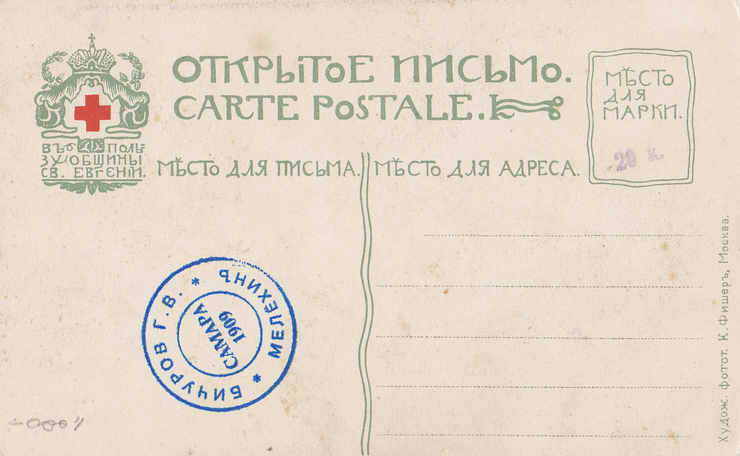 ОТКРЫТОЕ ПИСЬМО.
CARTE POSTALE.
МѢСТО
ДЛЯ
МАРКИ.
20 к.
ВЪ ПОЛЬ-
ЗУ ОБЩИНЫ
СВ. ЕВГЕНІИ.
МѢСТО ДЛЯ ПИСЬМА.
МѢСТО ДЛЯ АДРЕСА.
* БИЧУРОВ Г. В. * МЕЛЕХИНЪ
САМАРА
1909
Худож. фотот. К. Фишеръ, Москва.